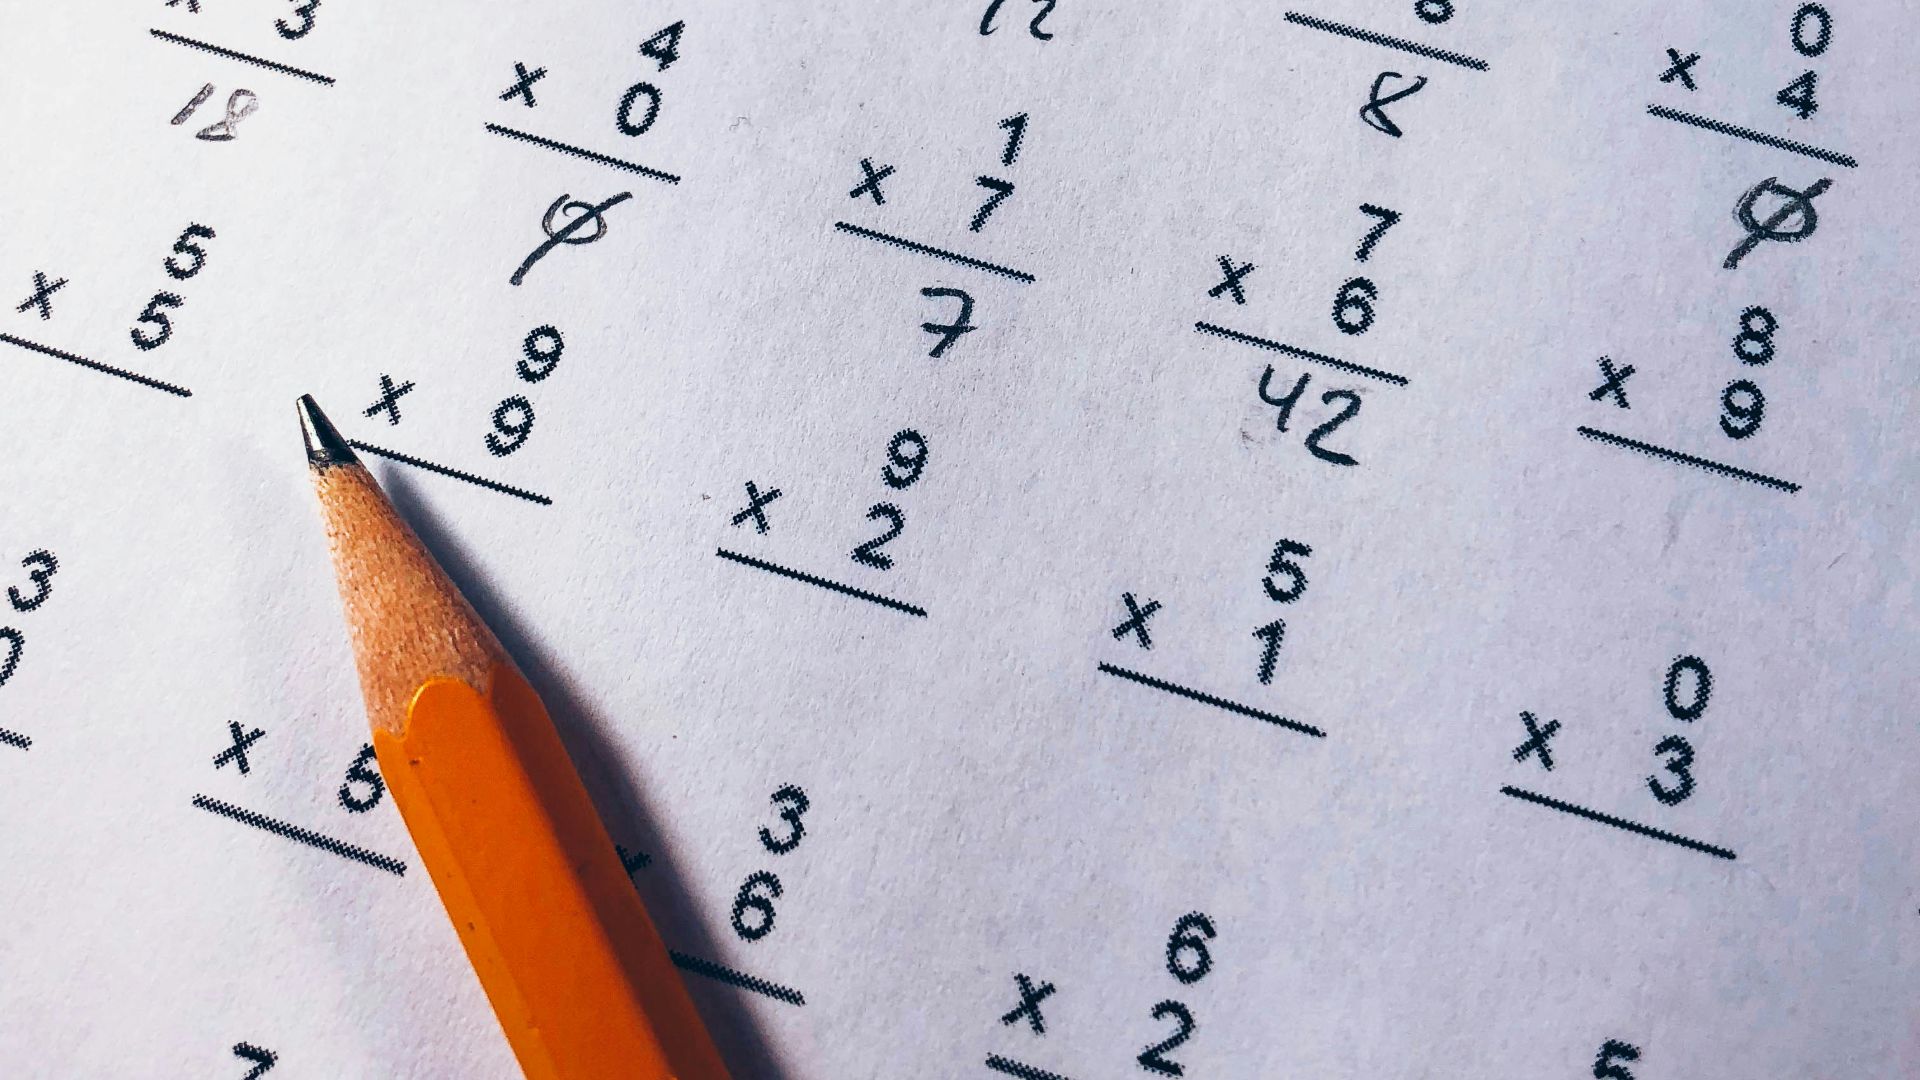 x 3
18
4
x 0
0
12
1
x 7
7
8
0
x 4
0
5
x 5
9
x 9
7
x 6
42
8
x 9
3
9
x 2
5
x 1
0
x 3
x
3
6
6
x 2
7
5